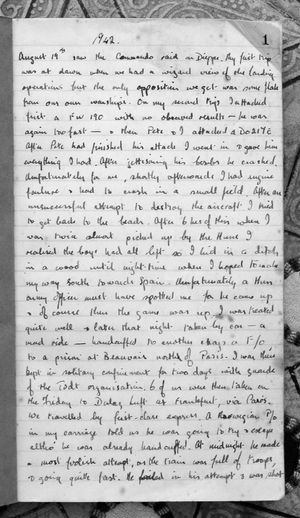 1
1942.
August 19th saw the Commando raid on Dieppe. My first trip
was at dawn when we had a wizard view of the landing
operations but the only opposition we got was some flak
from our own warships. On my second trip I attacked
first a FW 190 with no observed results – he was
again too fast – & then Pete & I attacked a Do 217E
After Pete had finished his attack I went in & gave him
everything I had. After jettisoning his bombs he crashed.
Unfortunately for me, shortly afterwards I had engine
failure & had to crash in a small field. After an
unsuccessful attempt to destroy the aircraft I tried
to get back to the beach. After 6 hrs of this when I
was twice almost picked up by the Huns I
realised the boys had all left so I hid in a ditch
in a wood until night-time when I hoped to make
my way South towards Spain. Unfortunately a Hun
army officer must have spotted me for he came up
& of course then the game was up. I was treated
quite well & later that night taken by car – a
mad ride – handcuffed to another chap a F/O
to a prison at Beauvais north of Paris. I was there
kept in solitary confinement for two days with guards
of the Todt organisation. 6 of us were then taken on
the Friday to Dulag Luft at Frankfurt, via Paris.
We travelled by first-class express. A Norwegian P/O
in my carriage told us he was going to try & escape
altho' he was already handcuffed. At midnight he made
a most foolish attempt, as the train was full of troops,
& going quite fast. He failed in his attempt & was shot